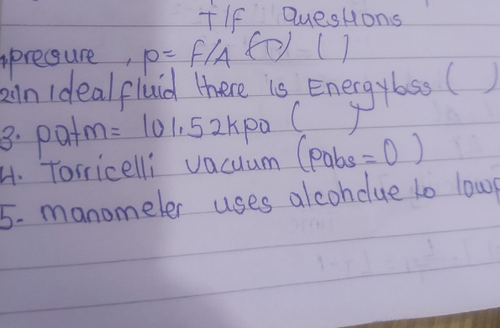 T/f Questions
1. pressure, p= F/A (T) ( )
2. In ideal fluid there is Energy loss ( )
3. patm= 101.52kpa ( )
4. Torricelli vacuum (pabs=0)
5- manometer uses alcohdue to lowp